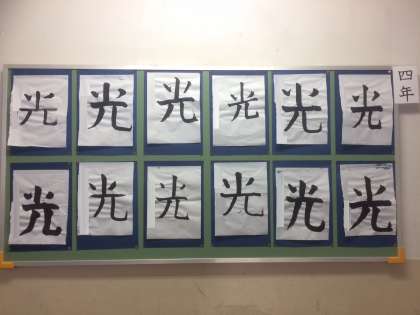 光 光 光 光 光 光
光 光 光 光 光 光
四年